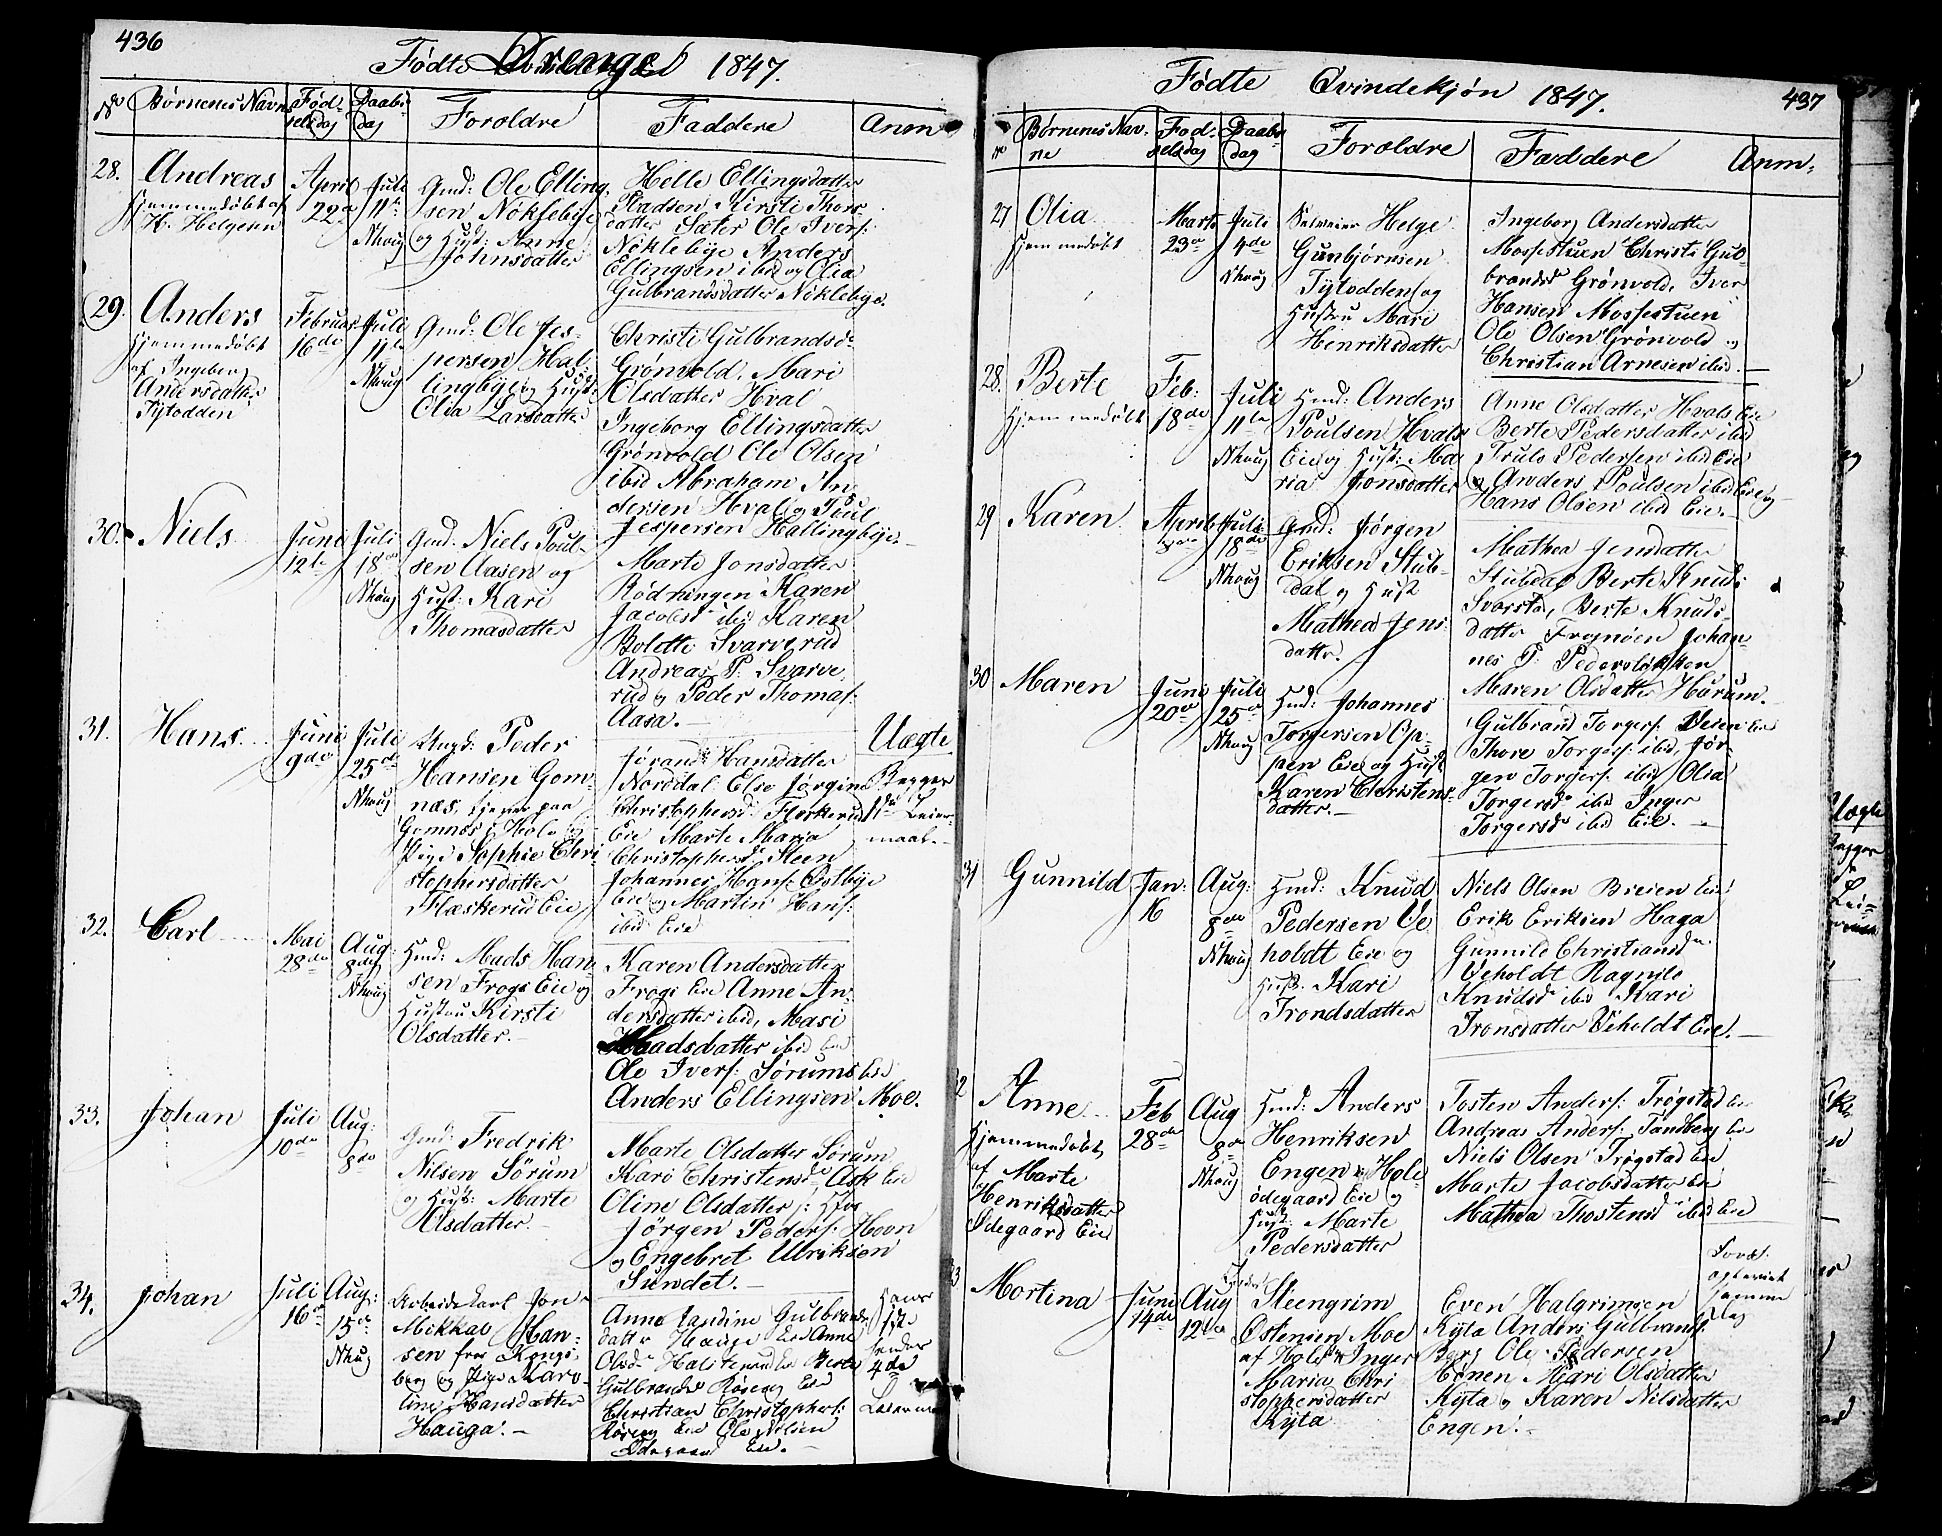 436
Fødte Drenge 1847.
No Børnenes Navne Fødselsdag Daabsdag Foroldre Faddere Anm
28. Andreas
Hjemmedøbt af
H. Helgesen
April
22de
Juli
11te
Nhoug
Gmd: Ole Elling-
sen Nöklebye
og Hust: Anne
Johnsdatter
Helle Ellingsdatter
Pladsen Kirsti Thors-
datter Sæter Ole Ivers:
Nöklebye Anders
Ellingsen ibid og Olia
Gulbrandsdatter Nöklebye.
29. Anders
Hjemmedøbt
af Ingeborg
Andersdatter
Tytodden
Februar
16de
Juli
11te
Nhoug
Gmd: Ole Jes-
persen Hal-
lingbye og Hust:
Olia Larsdatter
Christi Gulbrandsd
Grönvold, Mari
Olsdatter Hval
Ingeborg Ellingsdatter
Grönvold Ole Olsen
ibid Abraham An
dersen Hval og Poul
Jespersen Hallingbye.
30. Niels
Juni
12te
Juli
18de
Nhoug
Gmd: Niels Poul-
sen Aasen og
Hust: Kari
Thomasdatter
Marte Jonsdatter
Rödningen Karen
Jacobsd ibid Karen
Bolette Svarverud
Andreas P: Svarve
rud og Peder Thomas:
Aasa.
31. Hans
Juni
9de
Juli
25de
Nhoug
Ungk: Peder
Hansen Gom-
næs, tjener paa
Gomnæs i Hole og
Pige Sophie Chri
stophersdatter
Flæskerud Eie
Jørand Hansdatter
Norddal Else Jørgine
Christophersd Fleskerud
Eie Marte Maria
Christophersd Steen
Johannes Hans: Østbye
Eie og Martin Hans:
ibid Eie
Uægte
Begges
1ste Leier-
maal.
32. Carl
Mai
28de
Aug:
8de
Nhoug
Hmd: Mads Han
sen Frogs Eie og
Hustru Kirsti
Olsdatter.
Karen Andersdatter
Frogs Eie Anne An-
dersdatter ibid, Masi
Madsdatter ibid Eie
Ole Ivers: Sørums Eie
Anders Ellingsen Moe.
33. Johan
Juli
10de
Aug:
8de
Gmd: Fredrik
Nilsen Sörum
og Hust: Marte
Olsdatter.
Marte Olsdatter Sørum
Kari Christensd Ask Eie
Oline Olsdatter
Jörgen Peders: Hovn
og Engebret Ulriksen
Sundet.
34. Johan
Juli
16de
Aug:
15de
Nhoug
Arbeidskarl Jon
Mikkal Han-
sen fra Kongs-
berg og Pige Karo-
line Hansdatter
Hauga.
Anne Gulbrands
datter Hauge Eie Anne
Olsd Halsterud Eie Berte
Gulbrandsd Røseng Eie
Christian Christophers:
Røseng Eie Ole Nilsen
Ødegaard Eie.
Hans
1ste
hendes
4de
Leierm
437
Fødte Qvindekjøn 1847.
No Børnenes Navne Fødselsdag Daabsdag Forældre Faddere Anm.
27 Olia
Hjemmedøbt
Marts
23de
Juli
4de
Nhoug
Selveier Helge
Gunbjørnsen
Tytodden og
Hustru Mari
Henriksdatter
Ingeborg Andersdatter
Mossestuen Christi Gul-
brandsd Grønvold, Iver
Hansen Mossestuen
Ole Olsen Grønvold og
Christian Arnesen ibid.
28. Berte
Hjemmedøbt
Feb:
18de
Juli
11te
Nhoug
Hmd: Anders
Poulsen Hvals
Eie og Hust: Ma
ria Jonsdatter
Anne Olsdatter Hvals Eie
Berte Pedersdatter ibid
Truls Pedersen ibid Eie
Anders Poulsen ibid Eie og
Hans Olsen ibid Eie.
29 Karen
April
Juli
18de
Nhoug
Gmd: Jørgen
Eriksen Stub-
dal og Hust
Mathea Jens
datter.
Mathea Jensdatter
Stubdal Berte Knuds
Svarstad, Berte Knuds-
datter Frognøen Johan-
nes P: Pedersløkken
Maren Olsdatter Hurum.
30 Maren
Juni
20de
Juli
25de
Nhoug
Hmd: Johannes
Torgersen Op-
pen Eie og Hust
Karen Christens-
datter.
Gulbrand Torgers: Veien Eie
Thore Torgers: ibid, Jør-
gen Torgers: ibid Olia
Torgersd ibid Inger
Torgersd ibid Eie.
31 Gunnild
Jan:
16
Aug:
8de
Nhoug
Hmd: Knud
Pedersen Ve
holdt Eie og
Hust. Kari
Trondsdatter
Niels Olsen Breien Eie
Erik Eriksen Haga
Gunnild Christiansd
Veholdt Ragnild
Knudsd ibid Kari
Tronsdatter Veholdt Eie.
32 Anne
Hjemmedøbt
af Marte
Henriksdatter
Ødegaard Eie
Feb
28de
Aug
8de
Nhoug
Hmd: Anders
Henriksen
Engen i Hole
ødegaard Eie og
Hust: Marte
Pedersdatter
Tosten Anders: Trøgstad Eie
Andreas Anders: Tandberg Eie
Niels Olsen Trøgstad Eie
Marte Jacobsdatter Eie
Mathea Thostensd ibid Eie
33 Mortina
Juni
14de
Aug
12te
Steengrim
Østensen Moe
af Hole og Inger
Maria Chri
stophersdatter
Kyta
Even Halgrimsen
Kyta Anders Gulbrands:
Berg Ole Pedersen
Hønen Mari Olsdatter
Kyta og Karen Nilsdatter
Engen.
Foræl:
samme
Dag